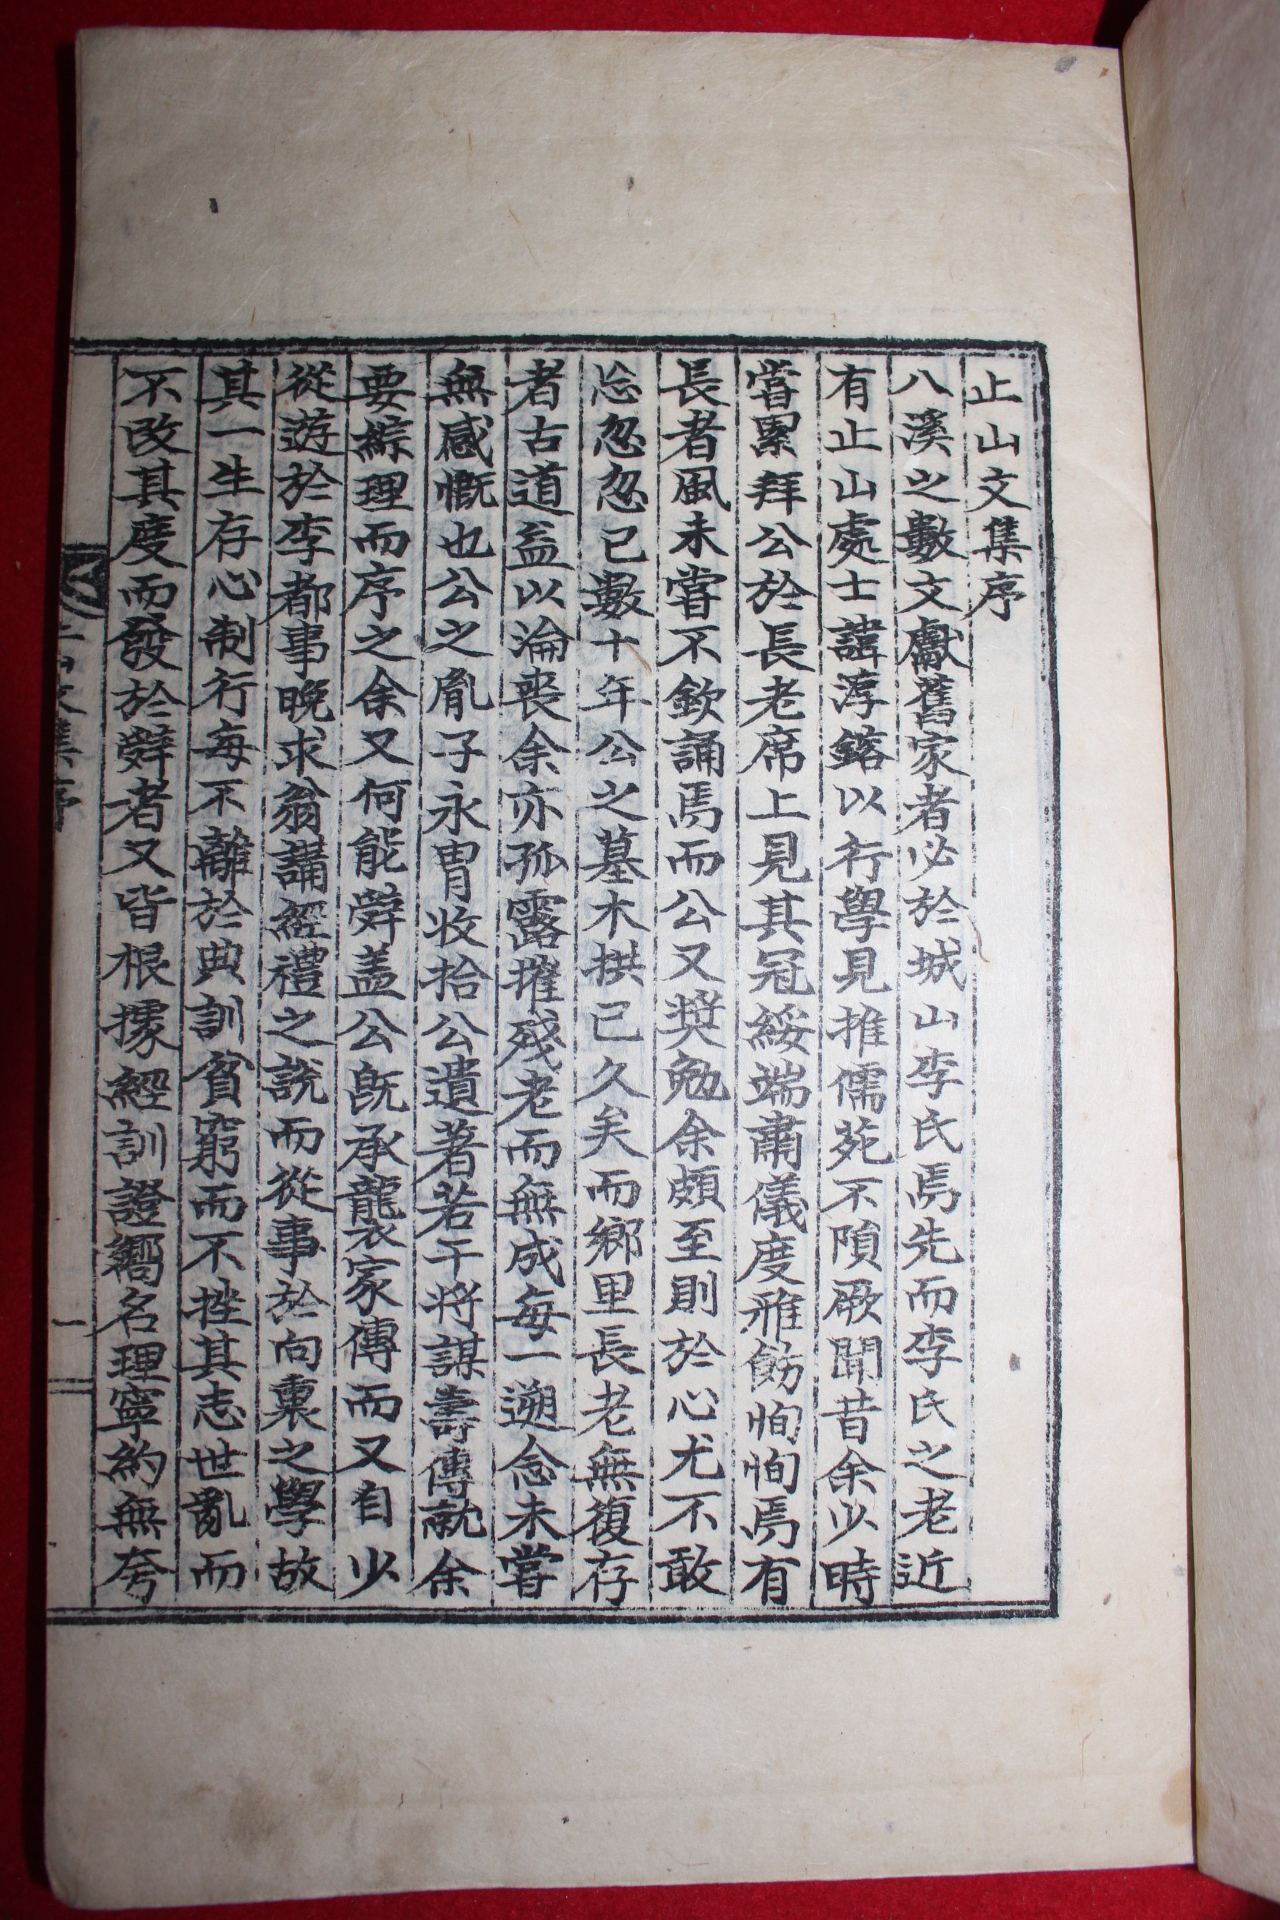 止山文集序
八溪之數文獻舊家者必於城山李氏焉先而李氏之老近
有止山處士諱淳鎔以行學見推儒苑不隕厥聞昔余少時
嘗累拜公於長老席上見其冠綏端肅儀度雅飭恂恂焉有
長者風未嘗不欽誦焉而公又奬勉余頗至則於心尤不敢
忘忽忽已數十年公之墓木拱已久矣而鄉里長老無復存
者古道益以淪喪余亦孤露摧殘老而無成每一遡念未嘗
無感慨也公之胤子永胄收拾公遺著若干將謀壽傳就余
要綜理而序之余又何能辤盖公旣承襲家傳而又自少
從遊於李都事晚求翁講經禮之說而從事於向裏之學故
其一生存心制行每不離於典訓貧窮而不挫其志世亂而
不改其度而發於辤者又皆根據經訓證嚮名理寧約無夸
止山文集序
一